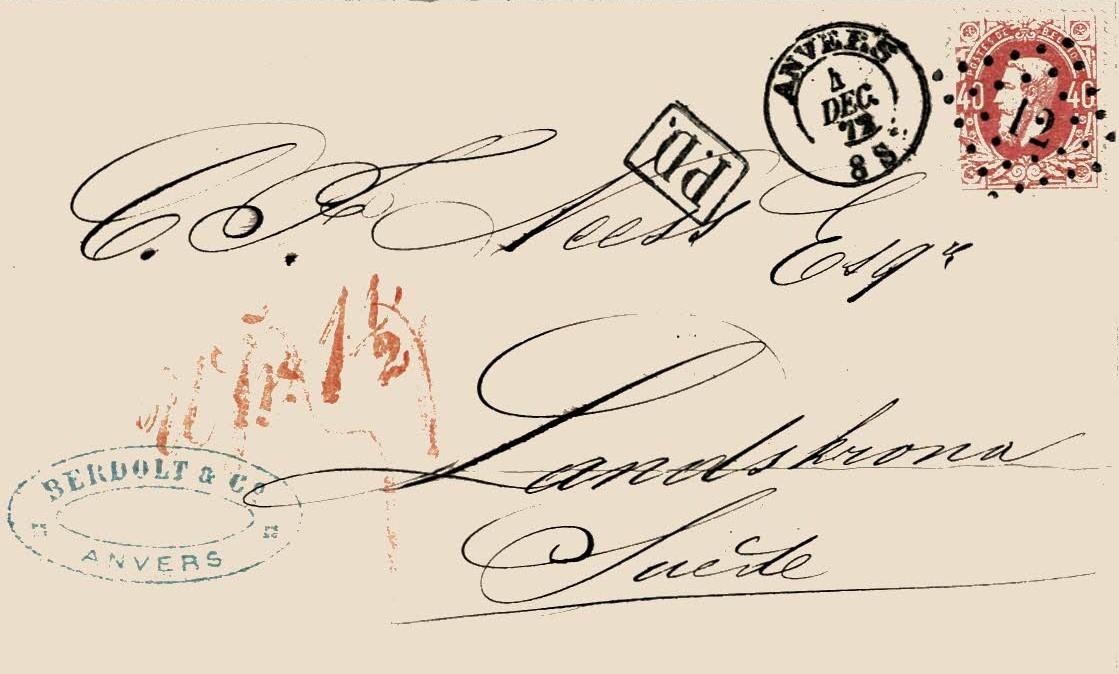 ANVERS
4
DEC.
72
8 S
POSTES DE BELGIQUE
40 40
12
P.D.
C. F. Neess Esqr
1½
Landskrona
Suède
BERDOLT & Co
ANVERS